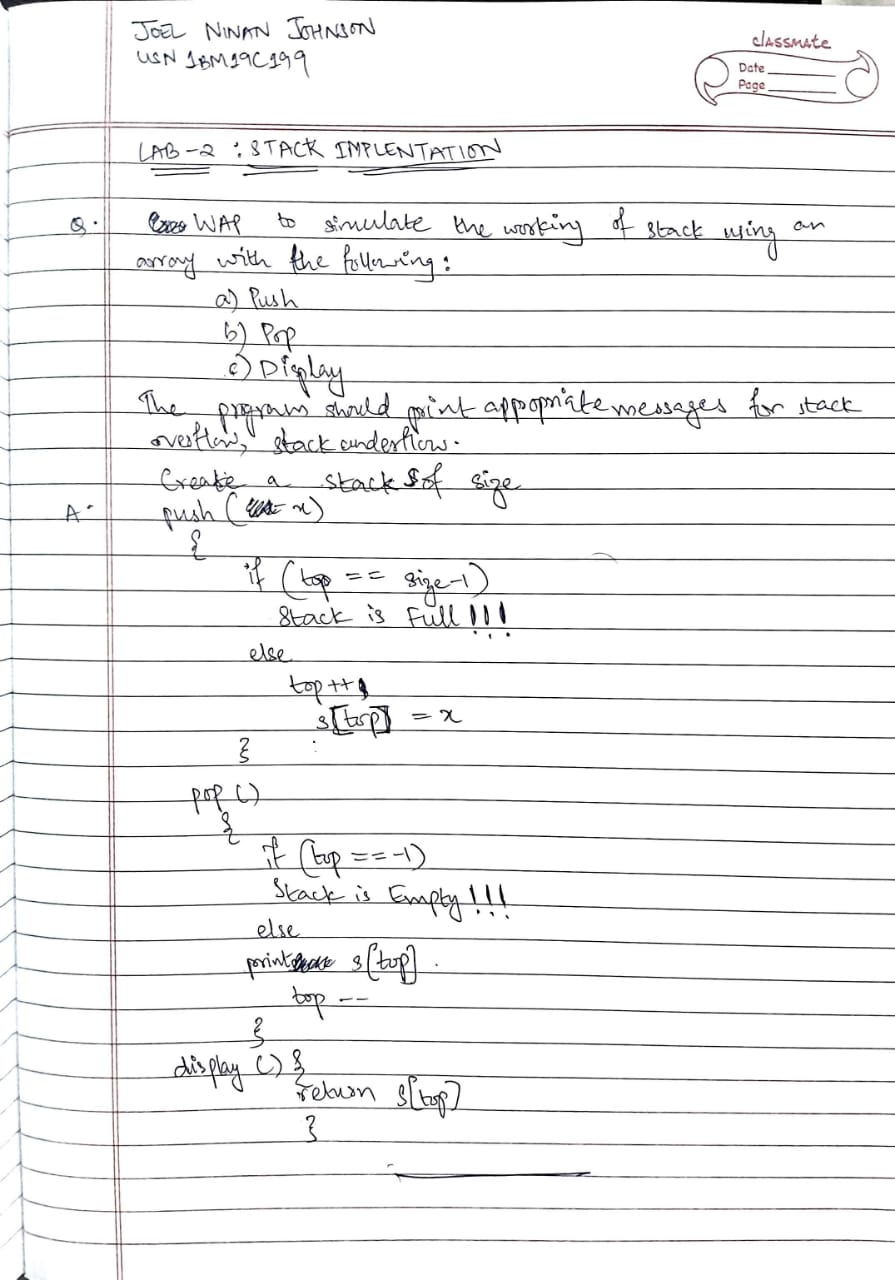 JOEL NINAN JOHNSON
USN 1BM19C199
classmate
Date
Page
LAB-2 : STACK IMPLENTATION
Q. WAP to simulate the working of stack using an
array with the following:
a) Push
b) Pop
c) Display
The program should print appropriate messages for stack
overflow, stack underflow.
Create a stack S of size
A. push ( x)
{
if (top == size-1)
Stack is Full !!!
else
top ++;
s[top] = x
}
pop ()
{
if (top == -1)
Stack is Empty !!!
else
print s[top].
top --
}
display () {
return s[top]
}